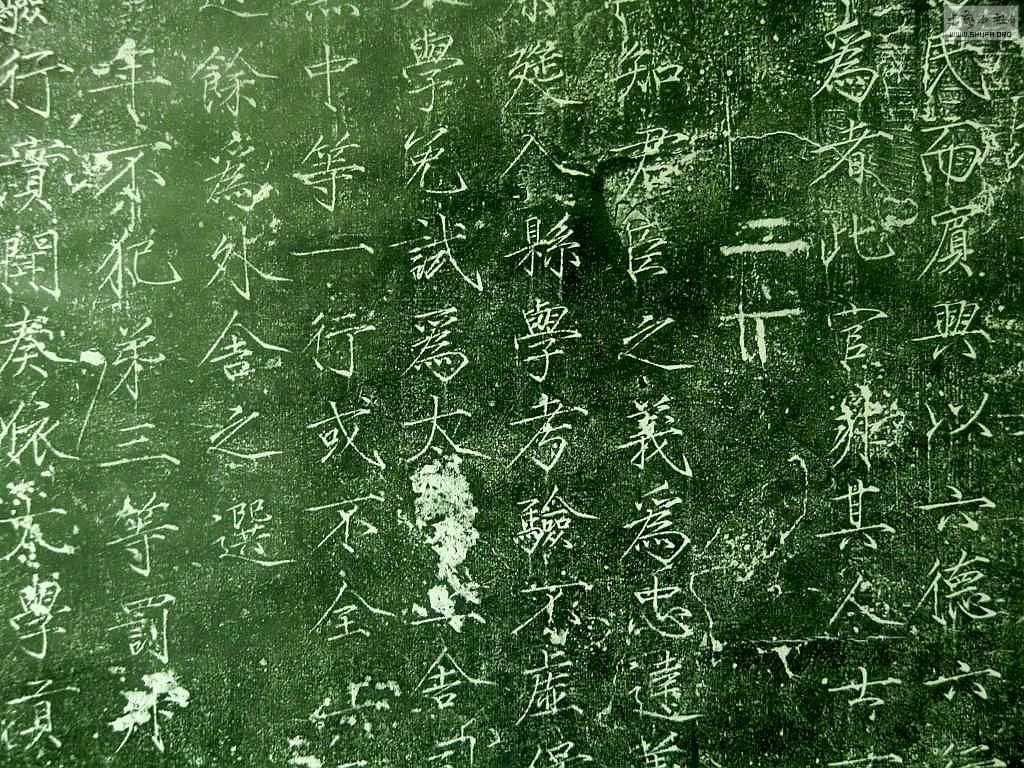 民而賓興以六德六行
爲者此官難其人士
知君臣之義爲忠達義
延入縣學考驗不虛保
學免試爲太上舍司
中等一行或不全
餘爲外舍之選
年不犯第三等罰
行實聞奏依太學貢
WWW.SHUFA.ORG